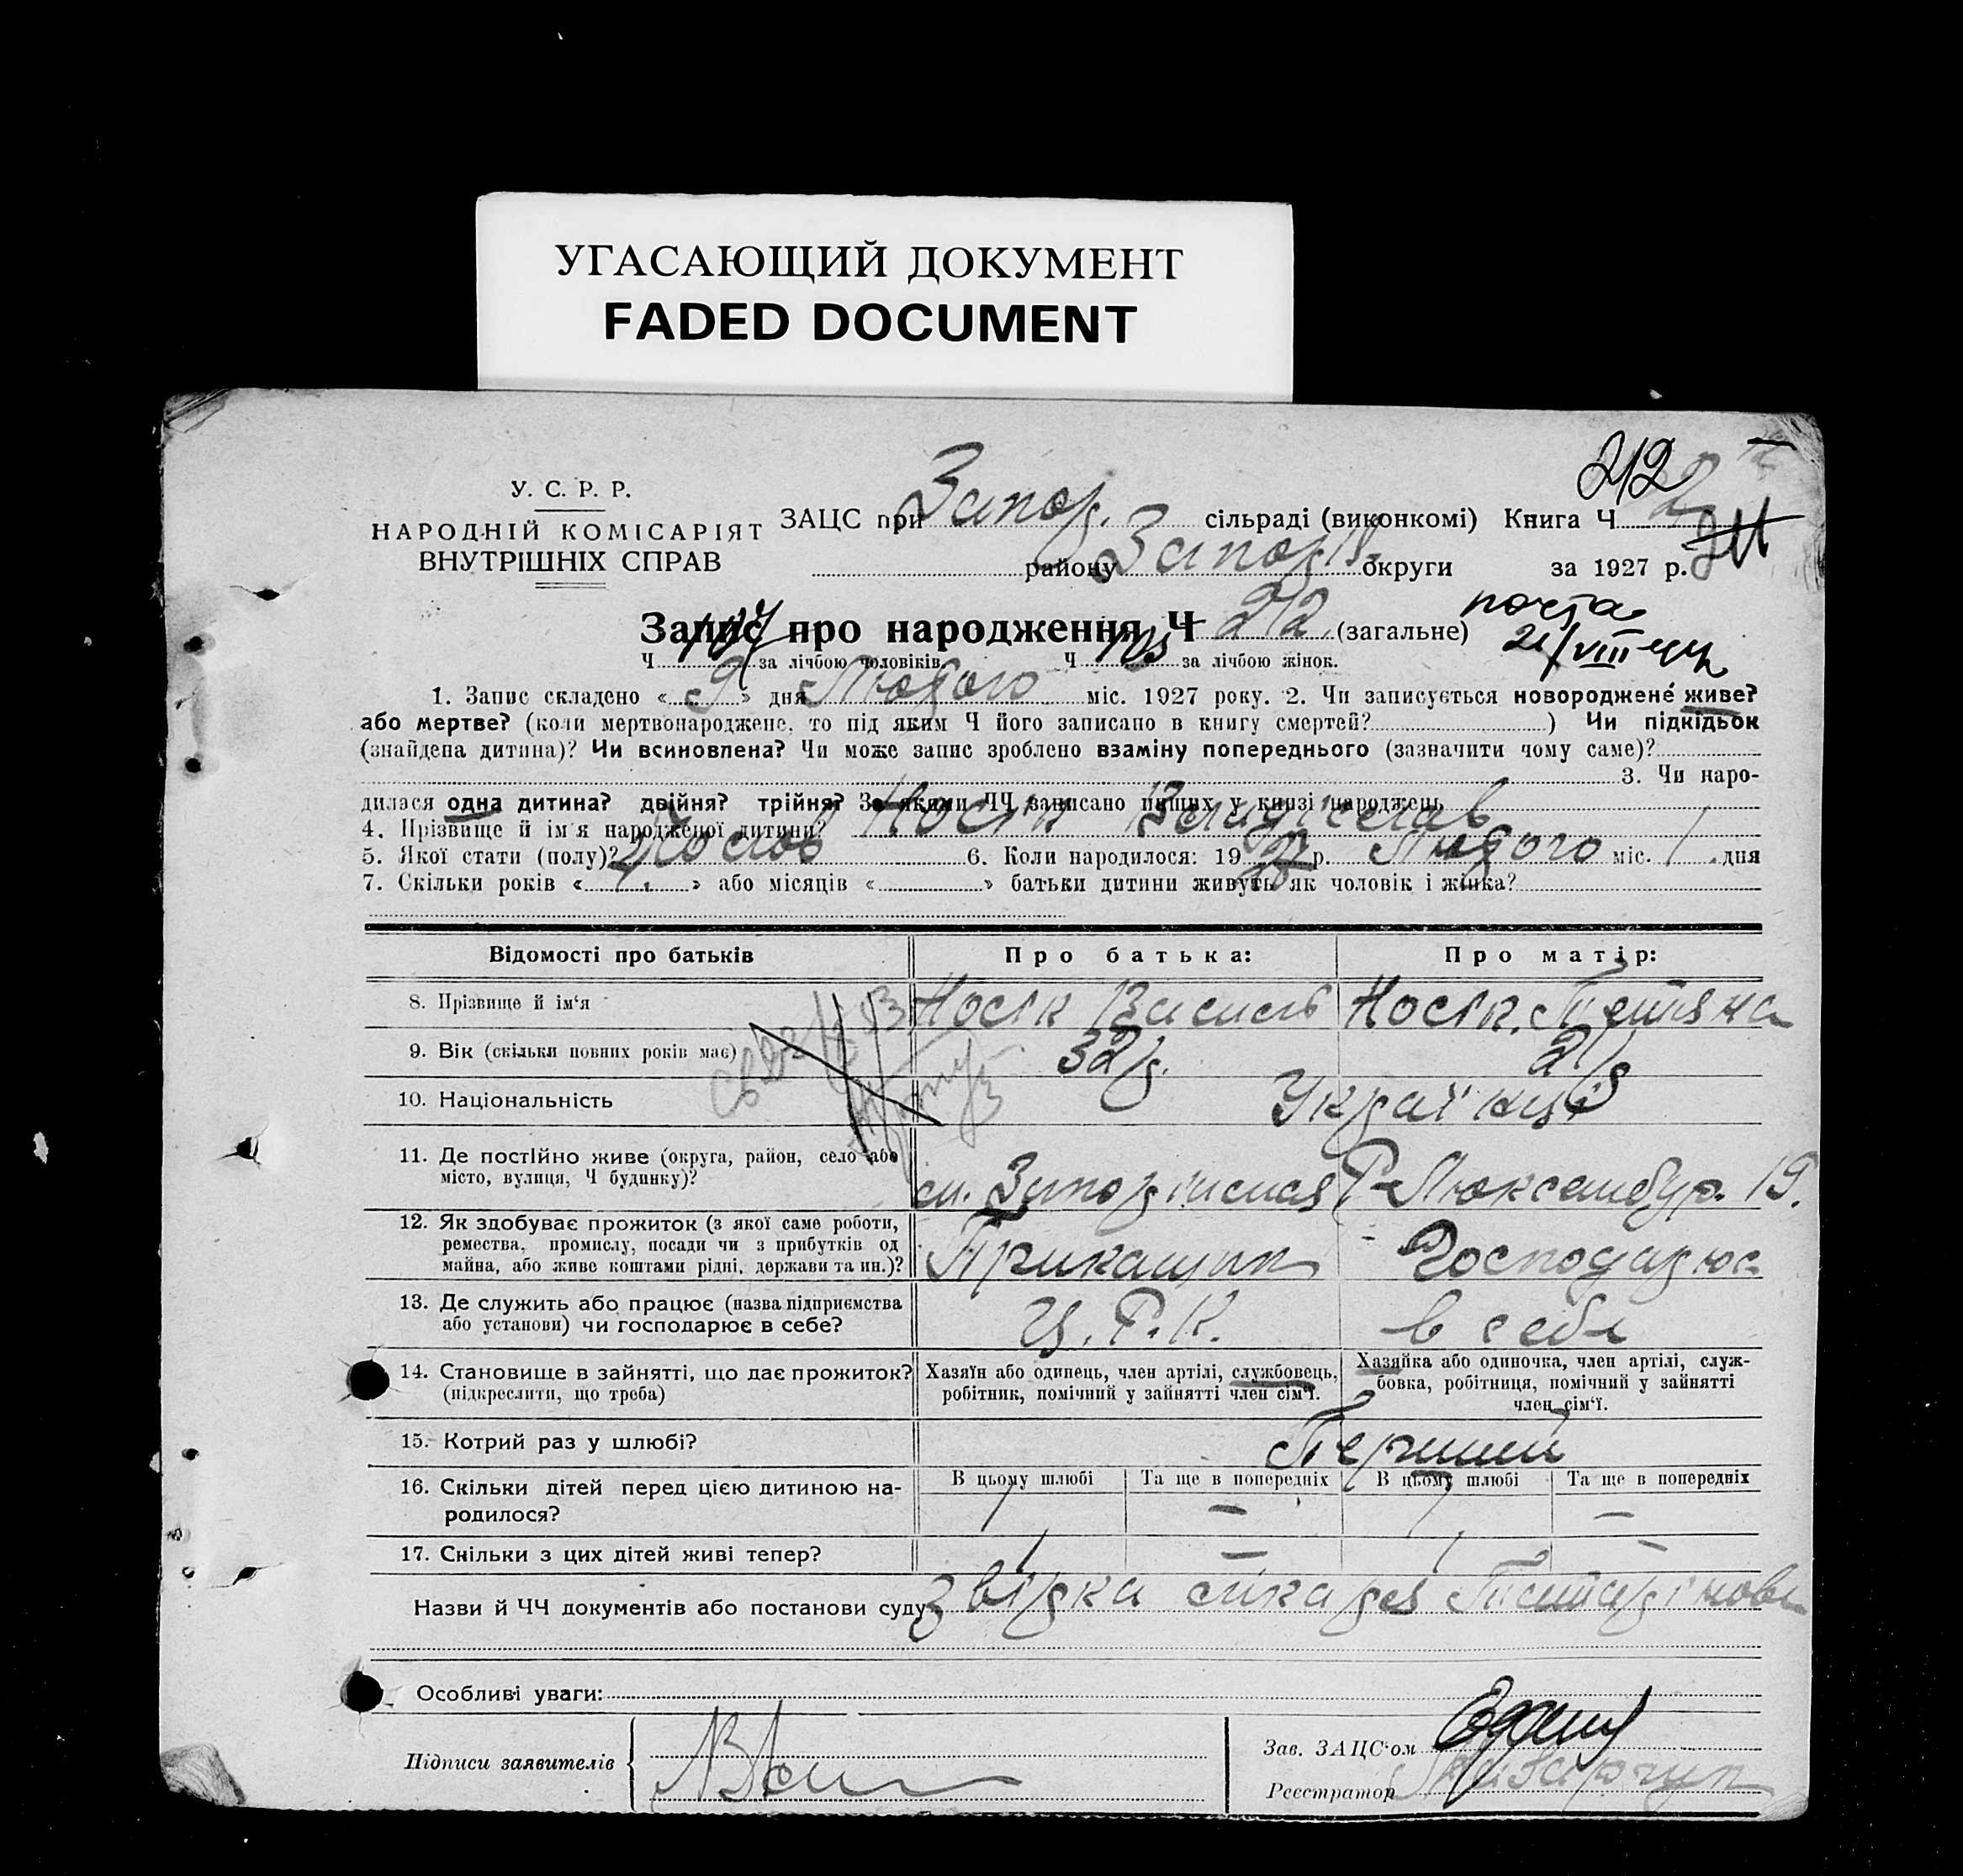 УГАСАЮЩИЙ ДОКУМЕНТ
FADED DOCUMENT
212
У. С. Р. Р.
НАРОДНІЙ КОМІСАРІЯТ
ВНУТРІШНІХ СПРАВ
ЗАЦС при Запор. сільраді (виконкомі) Книга Ч 2
району Запор округи за 1927 р.
Запис про народження Ч 212 (загальне)
почта
Ч 107 за лічбою чоловіків. Ч 105 за лічбою жінок.
1. Запис складено « 9 » дня Лютого міс. 1927 року. 2. Чи записується новороджене живе?
або мертве? (коли мертвонароджене, то під яким Ч його записано в книгу смертей? ) Чи підкідьок
(знайдена дитина)? Чи всиновлена? Чи може запис зроблено взаміну попереднього (зазначити чому саме)?
3. Чи наро-
дилася одна дитина? двійня? трійня? За якими ЧЧ записано инших у книзі народжень
4. Прізвище й ім'я народженої дитини? Носік Владіслав
5. Якої стати (полу)? Чолов 6. Коли народилося: 19 27 р. Лютого міс. 1 дня
7. Скільки років « » або місяців « » батьки дитини живуть як чоловік і жінка?
Відомості про батьків Про батька: Про матір:
8. Прізвище й ім'я Носік Василь Носік Тетяна
9. Вік (скільки повних років має) 32 р. 21 р
10. Національність Українці
11. Де постійно живе (округа, район, село або
місто, вулиця, Ч будинку)? Р Люксембур. 19.
12. Як здобуває прожиток (з якої саме роботи,
ремества, промислу, посади чи з прибутків од
майна, або живе коштами рідні, держави та ин.)? Прикащик Господарює
13. Де служить або працює (назва підприємства
або установи) чи господарює в себе? Ц. Р. К. в себе
14. Становище в зайнятті, що дає прожиток?
(підкреслити, що треба)
Хазяїн або одинець, член артілі, службовець,
робітник, помічний у зайнятті член сім'ї.
Хазяйка або одиночка, член артілі, служ-
бовка, робітниця, помічний у зайнятті
член сім'ї.
15. Котрий раз у шлюбі? Перший
В цьому шлюбі Та ще в попередніх В цьому шлюбі Та ще в попередніх
16. Скільки дітей перед цією дитиною на-
родилося? 1 — 1 —
17. Скільки з цих дітей живі тепер? 1 — 1 —
Назви й ЧЧ документів або постанови суду
Особливі уваги:
Підписи заявителів
Зав. ЗАЦС'ом
Реєстратор